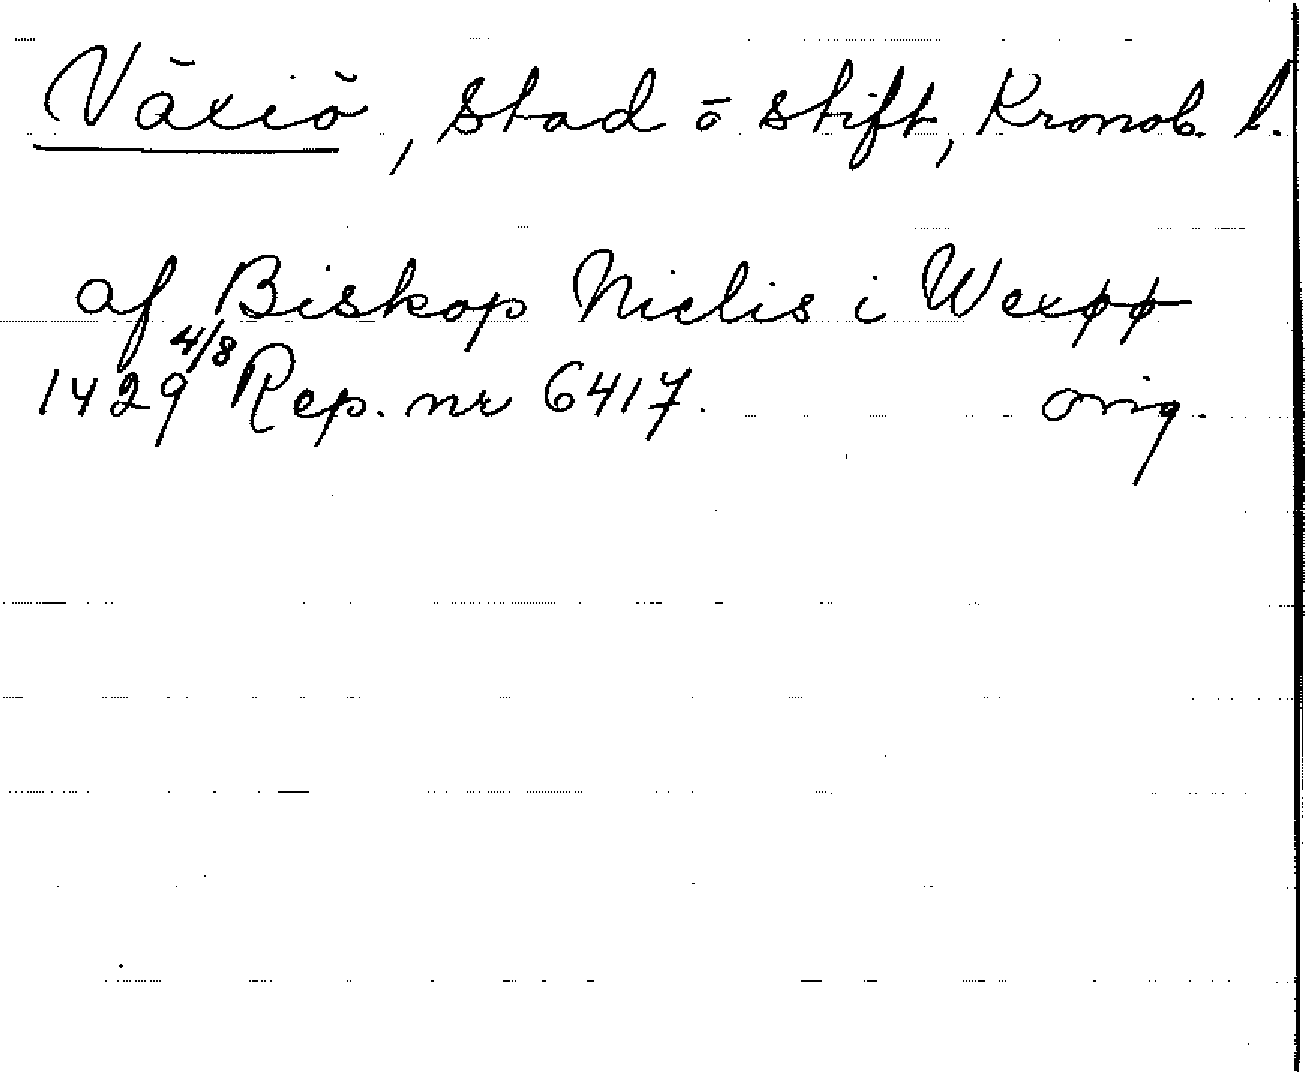 Växiö, stad o stift, Kronob. l.
af Biskop Nielis i Wexøø
1429 4/8 Rep. nr 6417. orig.